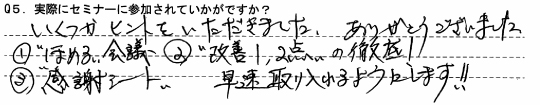 Q5. 実際にセミナーに参加されていかがですか?
いくつかヒントをいただきました。ありがとうございました
①"ほめる"会議 ②"改善1,2点"の徹底!
③"感謝シート" 早速取り入れるようにします!!